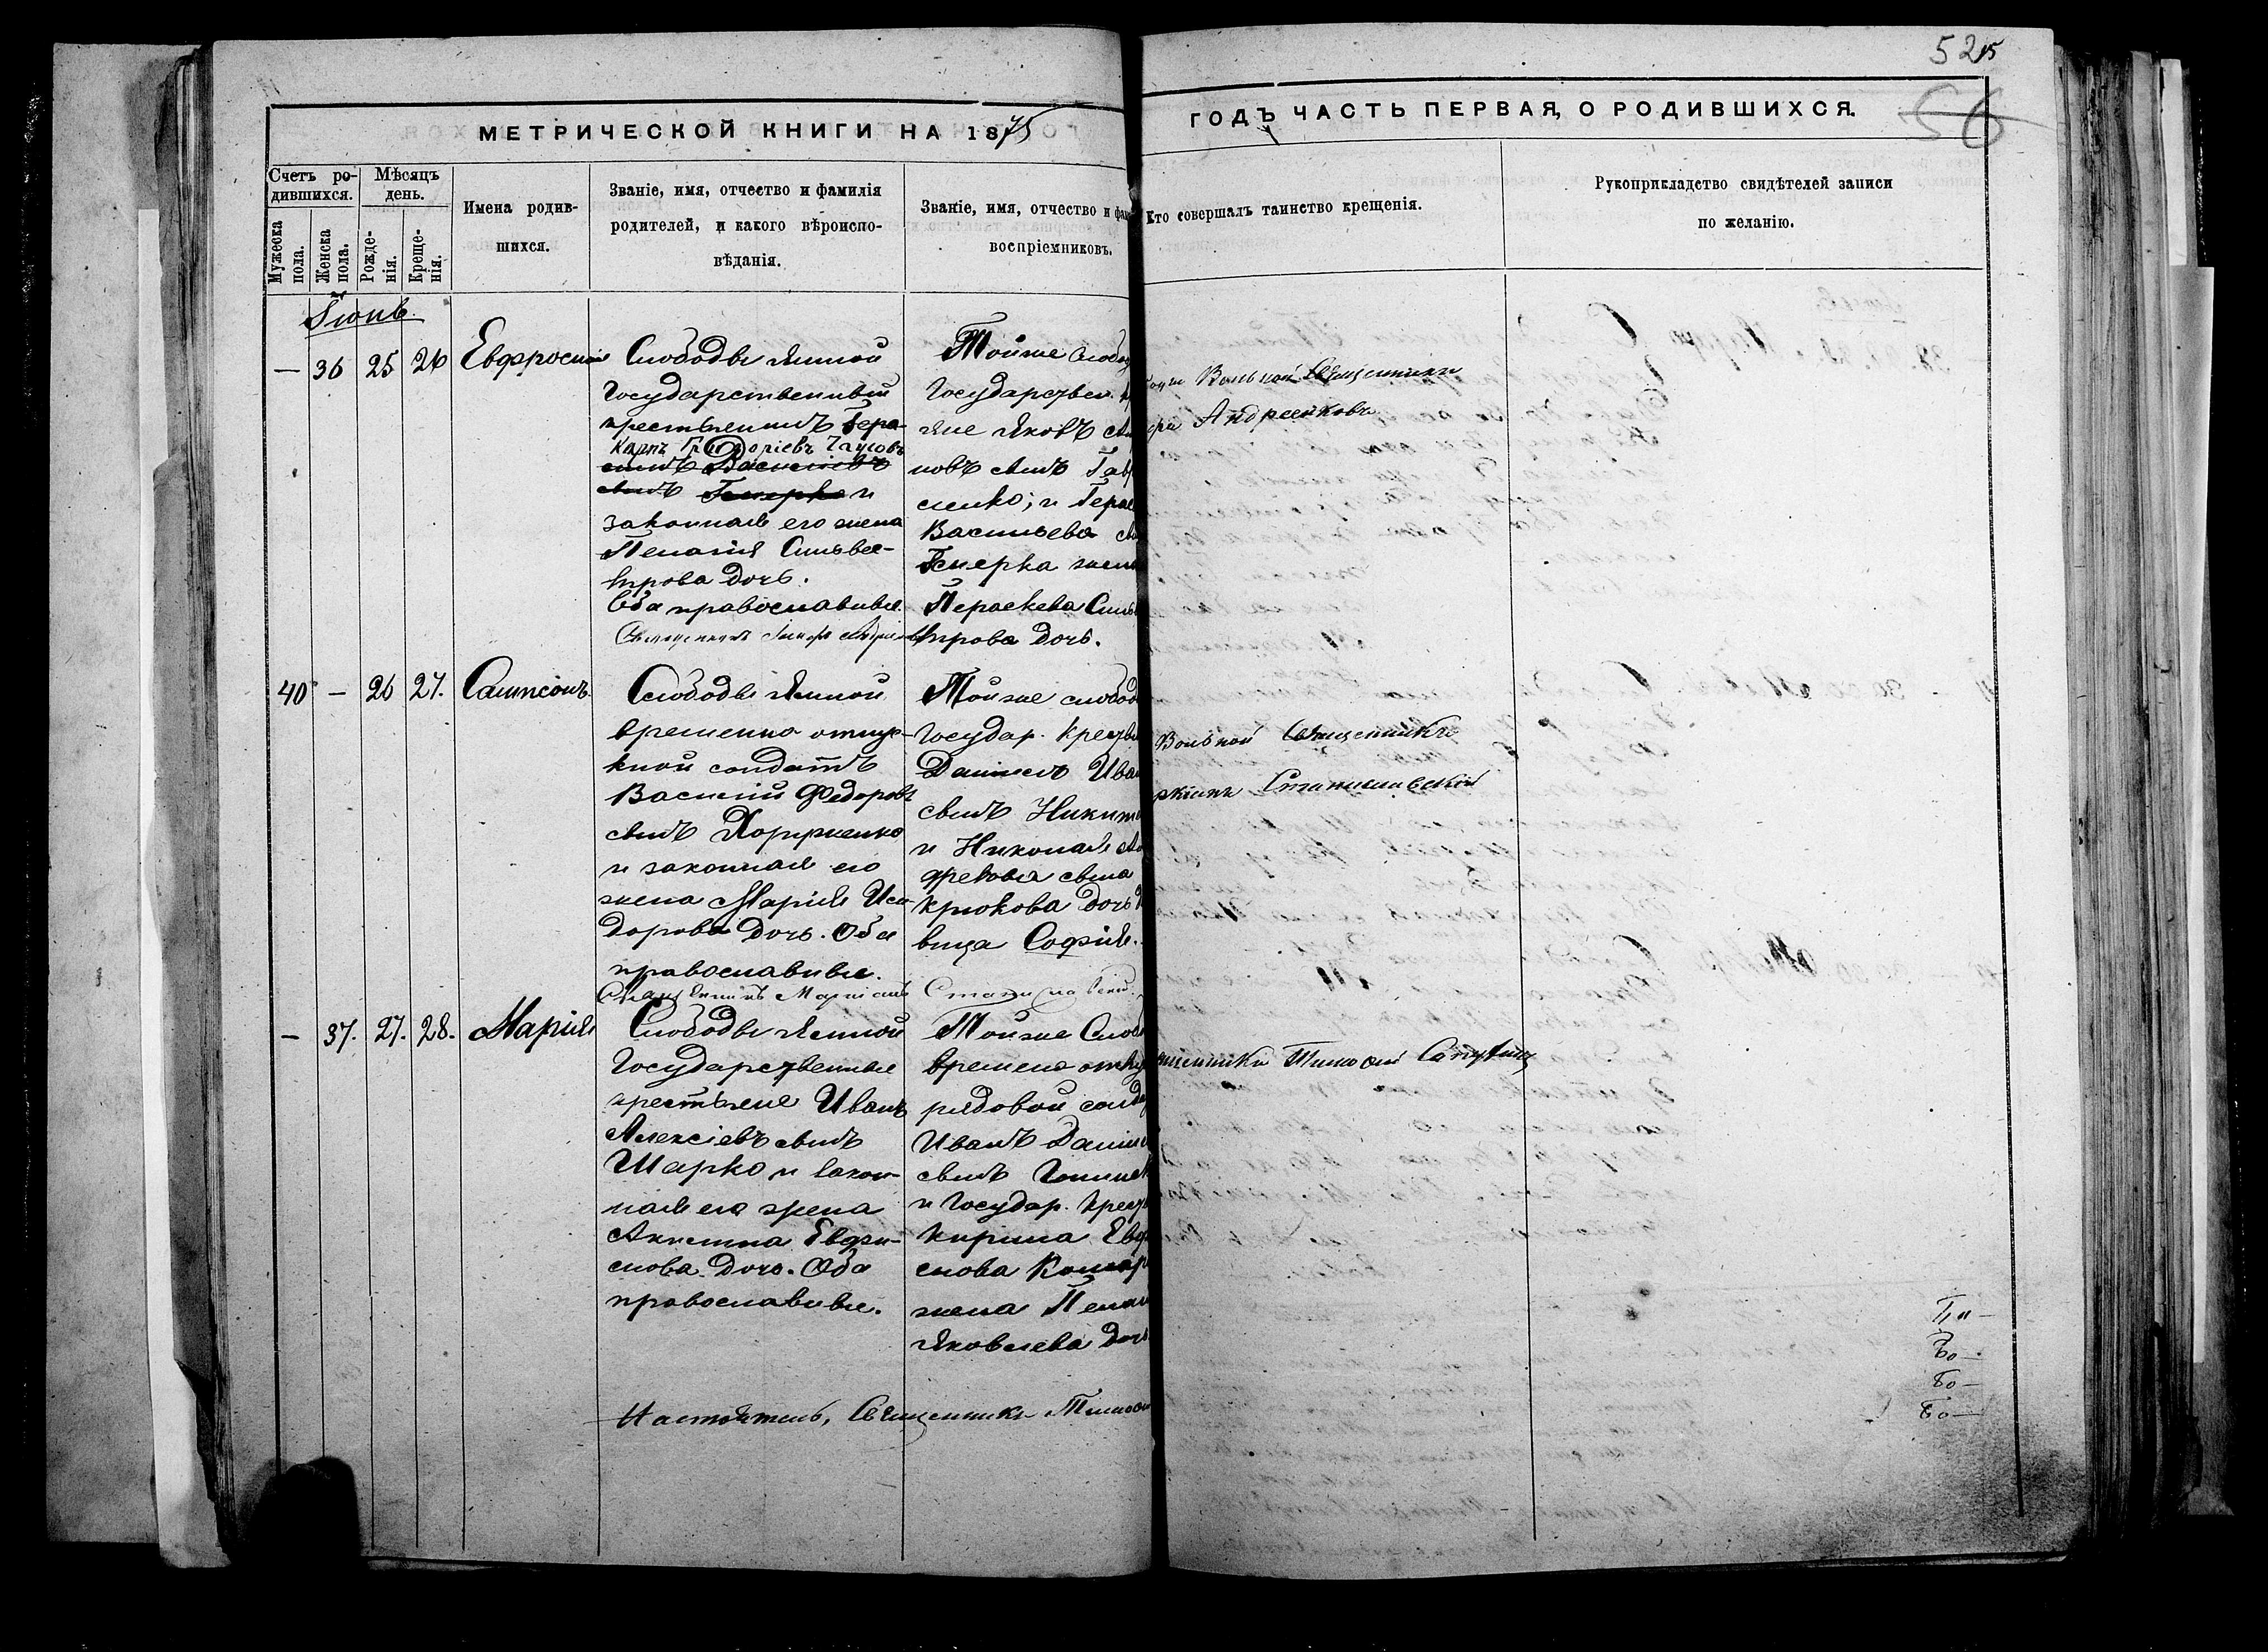 525
56
МЕТРИЧЕСКОЙ КНИГИ НА 1875
ГОДЪ ЧАСТЬ ПЕРВАЯ, О РОДИВШИХСЯ.
Счетъ ро-
дившихся.
Мужеска
пола.
Женска
пола.
Мѣсяцъ
день.
Рожде-
нія.
Креще-
нія.
Имена родив-
шихся.
Званіе, имя, отчество и фамилія
родителей, и какого вѣроиспо-
вѣданія.
Званіе, имя, отчество и фам
воспріемниковъ.
Кто совершалъ таинство крещенія.
Рукоприкладство свидѣтелей записи
по желанію.
Іюнь.
— 36 25 26 Евфросинія
Слободы Ямной
Государственный
крестьянинъ Гера-
Карпъ Григоріевъ
симъ Васильевъ
сынъ Гемерко и
законная его жена
Пелагія Сильвес-
трова дочь.
Оба православные.
Священникъ
Тойже слобод
Государствен. к
яне Яковъ
новъ сынъ Гав
сенко; и Герас
Васильева сы
Гемерка жена
Параскева Сильв
трова дочь.
Вольной Священникъ
Андреенковъ
40 — 26 27. Сампсонъ.
Слободы Ямной
временно отпус-
кной солдатъ
Василій Федоровъ
сынъ Хоруженко
и законная его
жена Марія Иси-
дорова дочь. Оба
православные.
Священникъ Маркіанъ Станиславскій
Тойже слобод
Государ. крестья
Даніилъ Иван
сынъ Никит
и Николая Ан
дреева сына
Крюкова дочь д
вица Софія.
Вольной Священникъ
ркіанъ Станиславскій
— 37. 27. 28. Марія
Слободы Ямной
Государственные
крестьяне Иванъ
Алексіевъ сынъ
Шарко и закон-
ная его жена
Акилина Евфи-
мова дочь. Оба
православные.
Тойже Слобо
временно отпу
рядовой солда
Иванъ Даніи
сынъ
и Государ. крест
Кирила Евф
мова Комар
жена Пелаг
Яковлева дочь
щенникъ Тимофей
Настоятель, Священникъ Тимофе